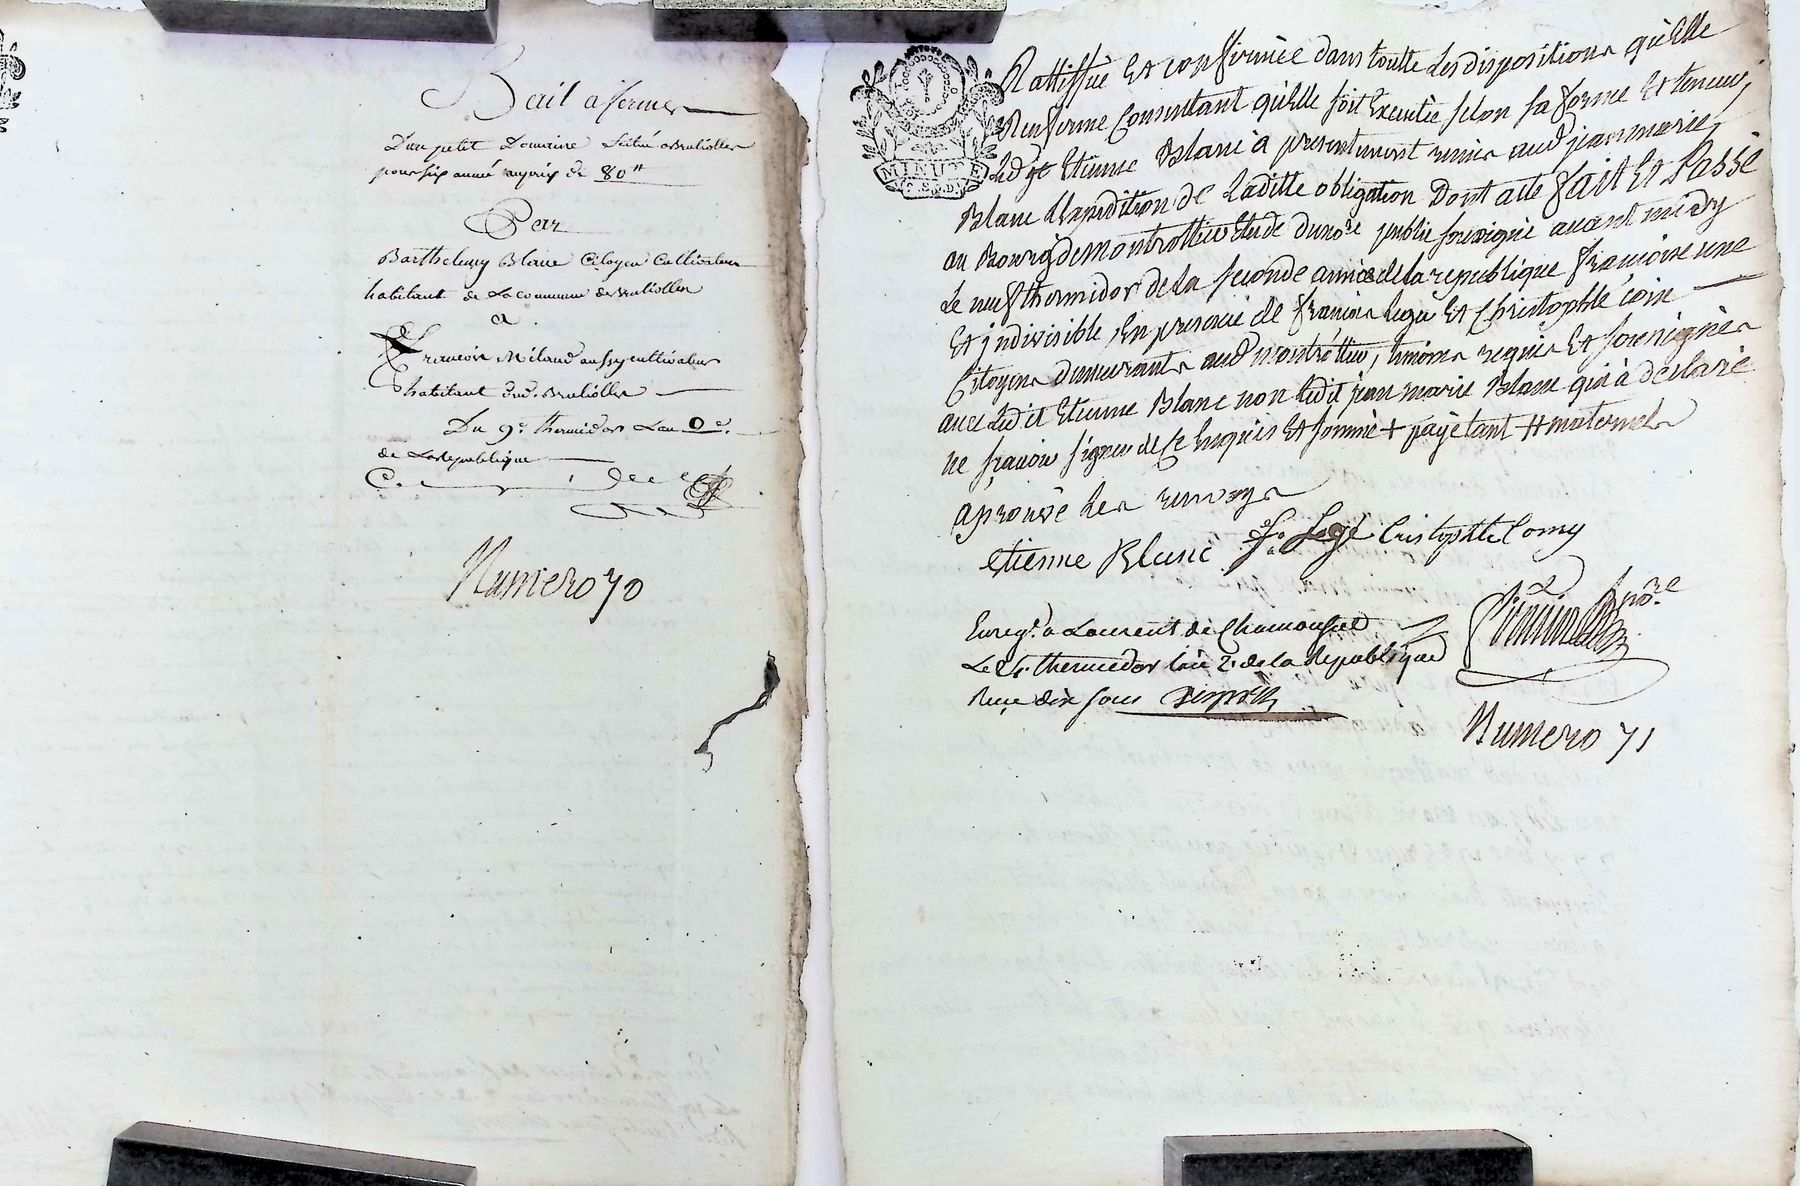 Bail a ferme
D'un petit Domaine Situé a Brulliolles
pour six année au prix de 80#
Par
Barthelemy Blanc Citoyen Cultivateur
habitant de La commune de Brulliolles
a
François Milaud aussy cultivateur
habitant aud. Brulliolles
Du 9e. thermidor Lan 2e.
de La Republique
Numero 70
Rattiffié Et confirmée dans toutte Les dispositions qu'Elle
Renferme Consentant qu'Elle soit Executée selon sa forme Et teneur,
Led. Etienne Blanc à présentement remis aud jean marie
Blanc L'Expedition de Laditte obligation Dont acte fait Et Passé
au Bourg de Montrottier Etude du nore public soussigné avant midy
Le neuf thermidor de La seconde année de la republique françoise une
Et jndivisible, En presence de françois Legé Et Christophle coin
Citoyens demeurants aud montrottier, temoins requis Et soussignés
avec Ledit Etienne Blanc non Ledit jean marie Blanc qui à déclaré
ne sçavoir signer de Ce Enquis Et sommé + payé tant # maternels
aprouvé Les renvoys
etienne Blanc fs Legé Cristophle Coiny
nore
Enregé. a Laurent de Chamousset
Le 24. thermidor L'an 2e. de la Republique
Reçu dix sous
Numero 71
MINUTE